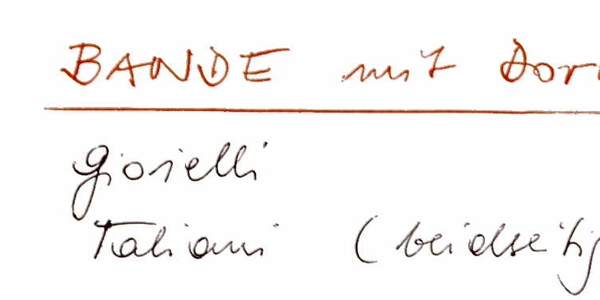 BANDE mit Dorn
Gioielli
Taliani (beidseitig